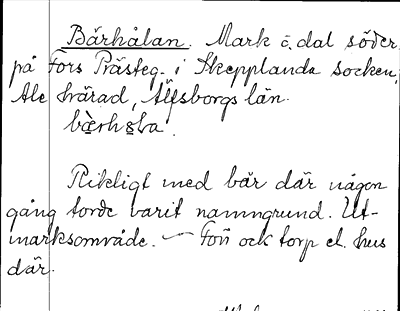 Bärhålan. Mark o. dal söder
på Fors Prästeg. i Skepplanda socken,
Ale härad, Älfsborgs län.
bæ̀rhɷla.
Rikligt med bär där någon
gång torde varit namngrund. Ut-
marksområde. — Förr ock torp el. hus
där.